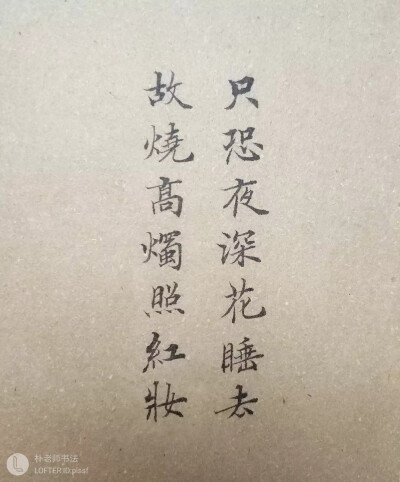 只恐夜深花睡去
故燒髙燭照紅妝
朴老师书法
LOFTER ID:plssf